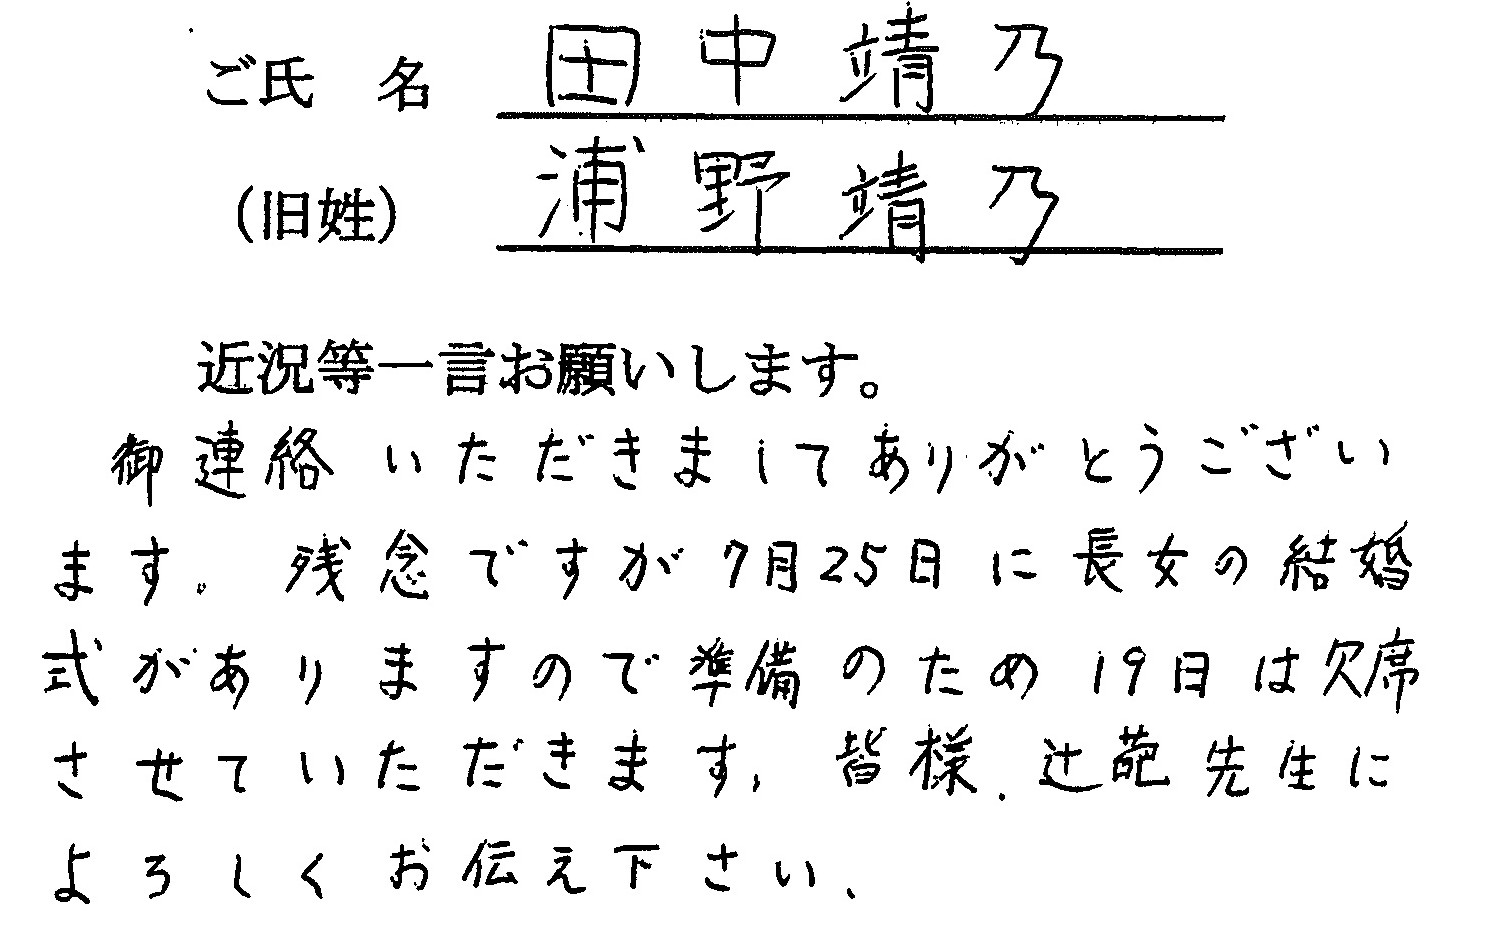 ご氏 名 田中靖乃
(旧姓) 浦野靖乃
近況等一言お願いします。
御連絡いただきましてありがとうござい
ます。残念ですが7月25日に長女の結婚
式がありますので準備のため19日は欠席
させていただきます。皆様、辻葩先生に
よろしくお伝え下さい。